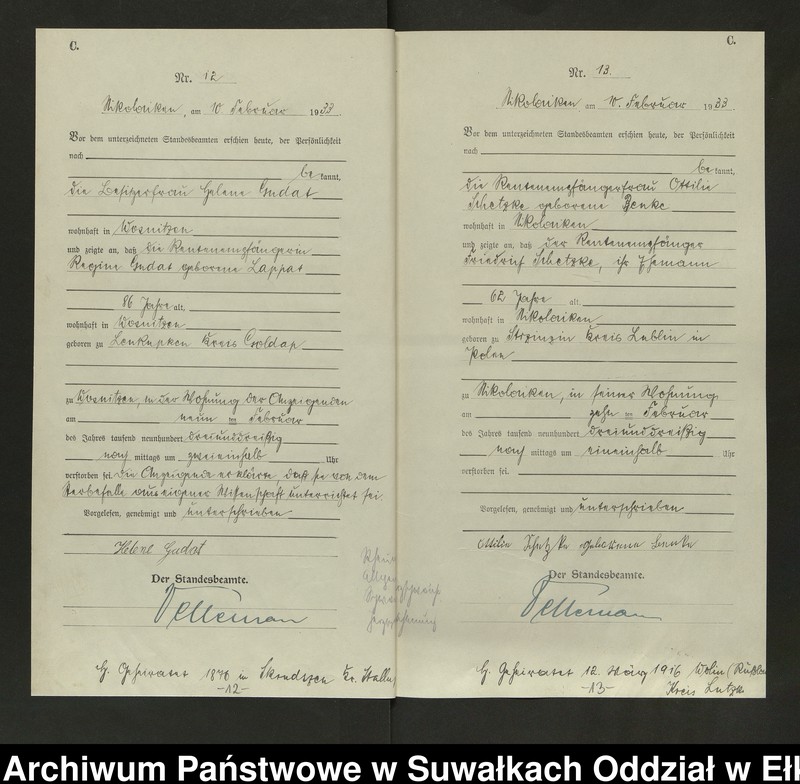 C.
Nr. 12
Nikolaiken, am 10 Februar 1933
Vor dem unterzeichneten Standesbeamten erschien heute, der Persönlichkeit
nach
be kannt,
die Besitzerfrau Helene Gudat
wohnhaft in Wosnitzen
und zeigte an, daß die Rentenempfängerin
Regine Gudat geborene Lappat
86 Jahre alt,
wohnhaft in Wosnitzen
geboren zu Lenkupken Kreis Goldap
zu Wosnitzen, in der Wohnung der Anzeigenden
am neun ten Februar
des Jahres tausend neunhundert dreiunddreißig
nach mittags um zweieinhalb Uhr
verstorben sei. Die Anzeigende erklärte, daß sie von dem
Sterbefalle aus eigener Wissenschaft unterrichtet sei.
Vorgelesen, genehmigt und unterschrieben
Helene Gudat
Der Standesbeamte.
G. Geheiratet 1876 in Kr.
-12-
C.
Nr. 13.
Nikolaiken am 10. Februar 1933.
Vor dem unterzeichneten Standesbeamten erschien heute, der Persönlichkeit
nach
be kannt,
die Rentenempfängerfrau Ottilie
Schetzke geborene Benke
wohnhaft in Nikolaiken
und zeigte an, daß der Rentenempfänger
Friedrich Schetzke, ihr Ehemann
62 Jahre alt,
wohnhaft in Nikolaiken
geboren zu Kreis Lublin in
Polen
zu Nikolaiken, in seiner Wohnung
am zehn ten Februar
des Jahres tausend neunhundert dreiunddreißig
nach mittags um eineinhalb Uhr
verstorben sei.
Vorgelesen, genehmigt und unterschrieben
Ottilie Schetzke geborene Benke
Der Standesbeamte.
G. Geheiratet 12. März 1916
-13- Kreis Lutzk
Archiwum Państwowe w Suwałkach Oddział w Eł